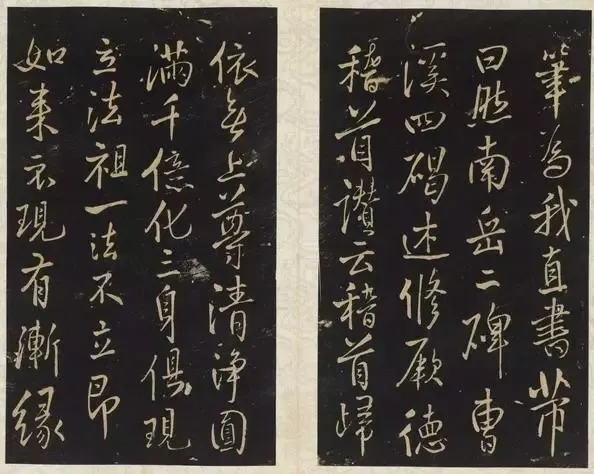 筆為我直書芾
曰然南岳二碑曹
溪四碣述修厥德
稽首讚云稽首歸
依無上尊清淨圓
滿千億化三身俱現
立法祖一法不立即
如来示現有漸緣